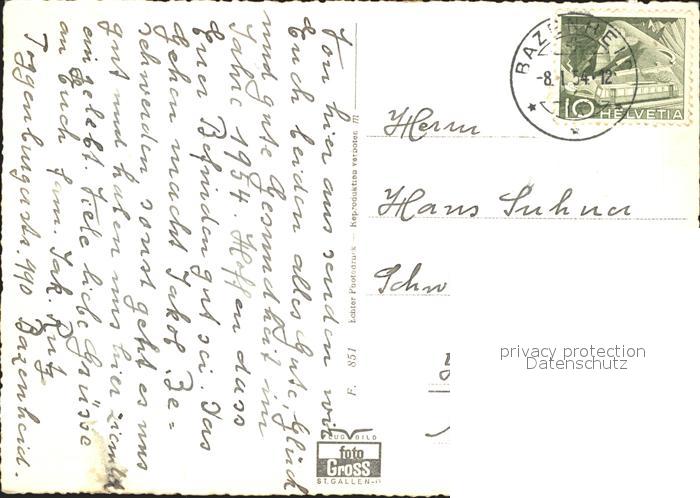 Von hier aus senden wir
Euch beiden alles Gute, Glück
und gute Gesundheit im
Jahre 1954. Hoffen dass
Euer Befinden gut sei. Das
Gehen macht Jakob Be=
schwerden sonst geht es uns
gut und haben uns hier ziemlich
eingelebt. Viele liebe Grüsse
an Euch Fam. Jak. Rutz
Toggenburgstr. 190 Bazenheid.
F. 851 Echter Photodruck — Reproduktion verboten
FLUGBILD
foto
Gross
ST. GALLEN
BAZENHEI
-8. I. 54-12
10 HELVETIA
Herrn
Hans Suhner
Schw
privacy protection
Datenschutz